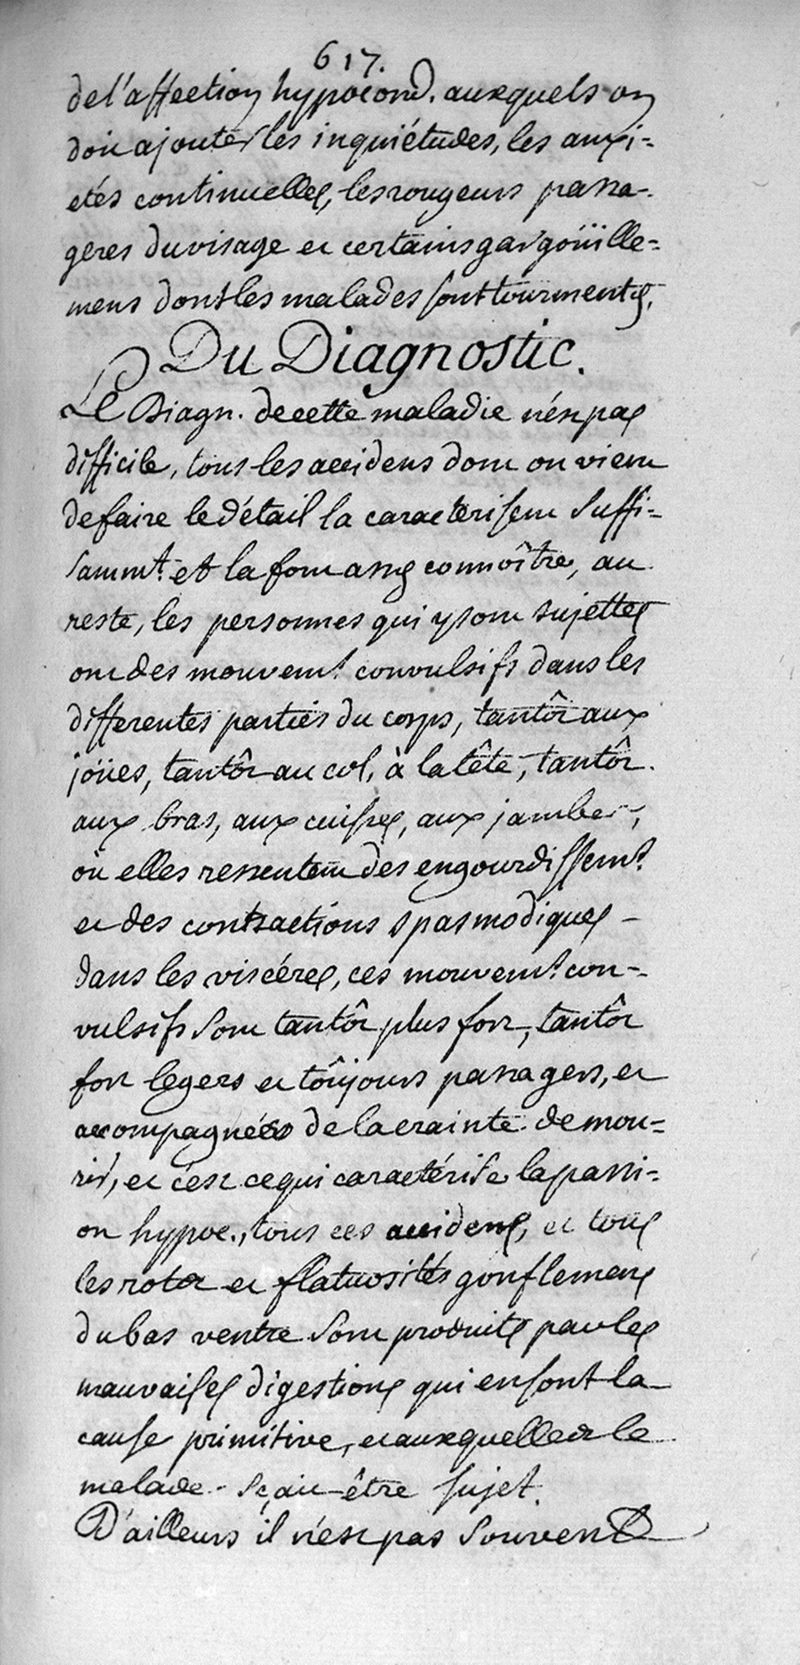 617.
de l'affection hypocond. auxquels on
doit ajouter les inquiétudes, les anxi=
etés continuelles, les rougeurs passa-
geres du visage et certains gargoüille=
mens dont les malades sont tourmentés.
Du Diagnostic.
Le Diagn. de cette maladie n'est pas
difficile, tous les accidens dont on vient
de faire le détail la caracterisent suffi=
samm.t et la font assés connoître, au
reste, les personnes qui y sont sujettes
ont des mouvem.t convulsifs dans les
differentes parties du corps, tantôt aux
joües, tantôt au col, à la tête, tantôt
aux bras, aux cuisses, aux jambes,
où elles ressentent des engourdissem.t
et des contractions spasmodiques
dans les viscéres, ces mouvem.t con-
vulsifs sont tantôt plus fort, tantôt
fort legers et toûjours passagers, et
accompagnées de la crainte de mou=
rir, et c'est ce qui caractérise la passi=
on hypoc., tous ces accidens, et tous
les rots et flatuosités gonflemens
du bas ventre sont produits par les
mauvaises digestions qui en sont la
cause primitive, et auxquelles le
malade sçait être sujet.
D'ailleurs il n'est pas souvent